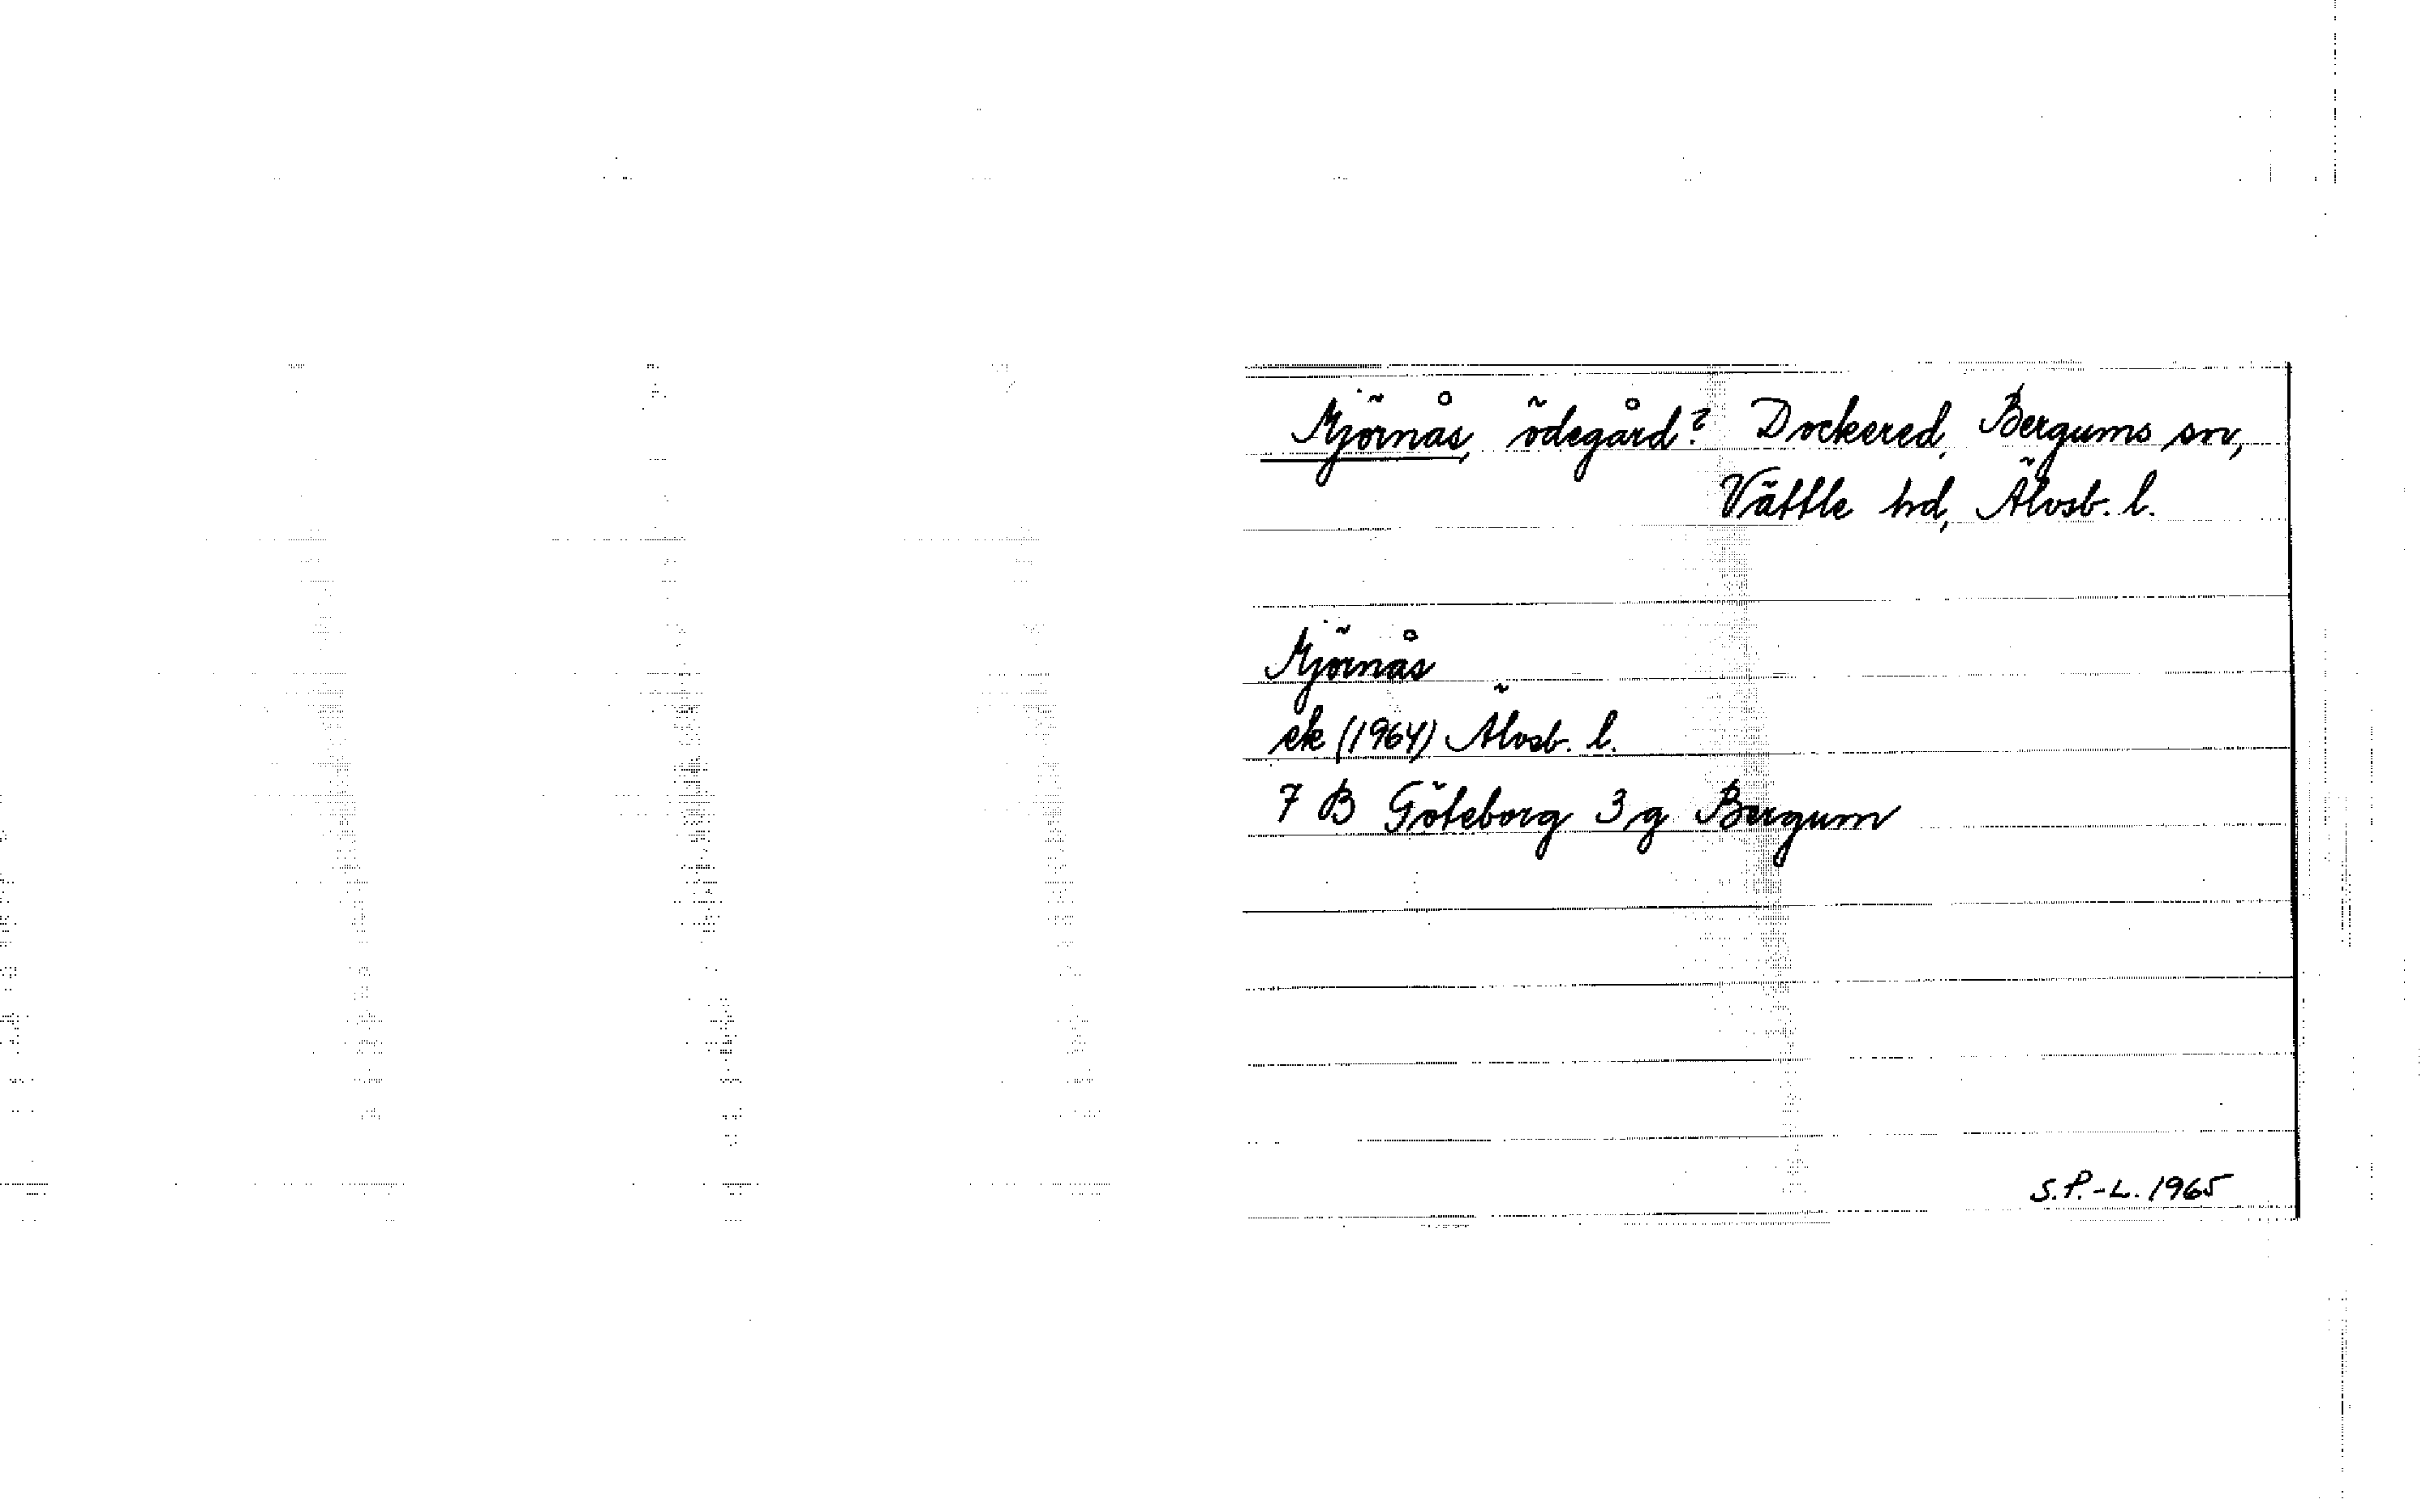 Mjörnås, ödegård? Dockered, Bergums sn,
Vättle hd, Älvsb. l.
Mjörnås
ek (1964) Älvsb. l.
7 B Göteborg 3 g Bergum
S.P.-L. 1965